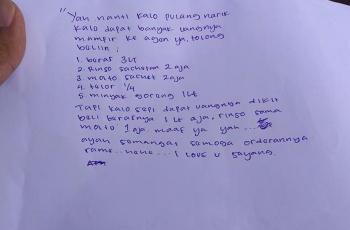 "Yah nanti kalo pulang narik
kalo dapat banyak uangnya
mampir ke agen ya, tolong
beliin :
1. beras 3Lt
2. Rinso sachetan 2 aja
3. mato sachet 2 aja
4. telor 1/4
5. minyak goreng 1 Lt
Tapi kalo sepi dapat uangnya dikit
beli berasnya 1 Lt aja, rinso sama
mato 1 aja. maaf ya yah....
ayah semangat semoga orderannya
rame.. hehe... I Love U sayang.